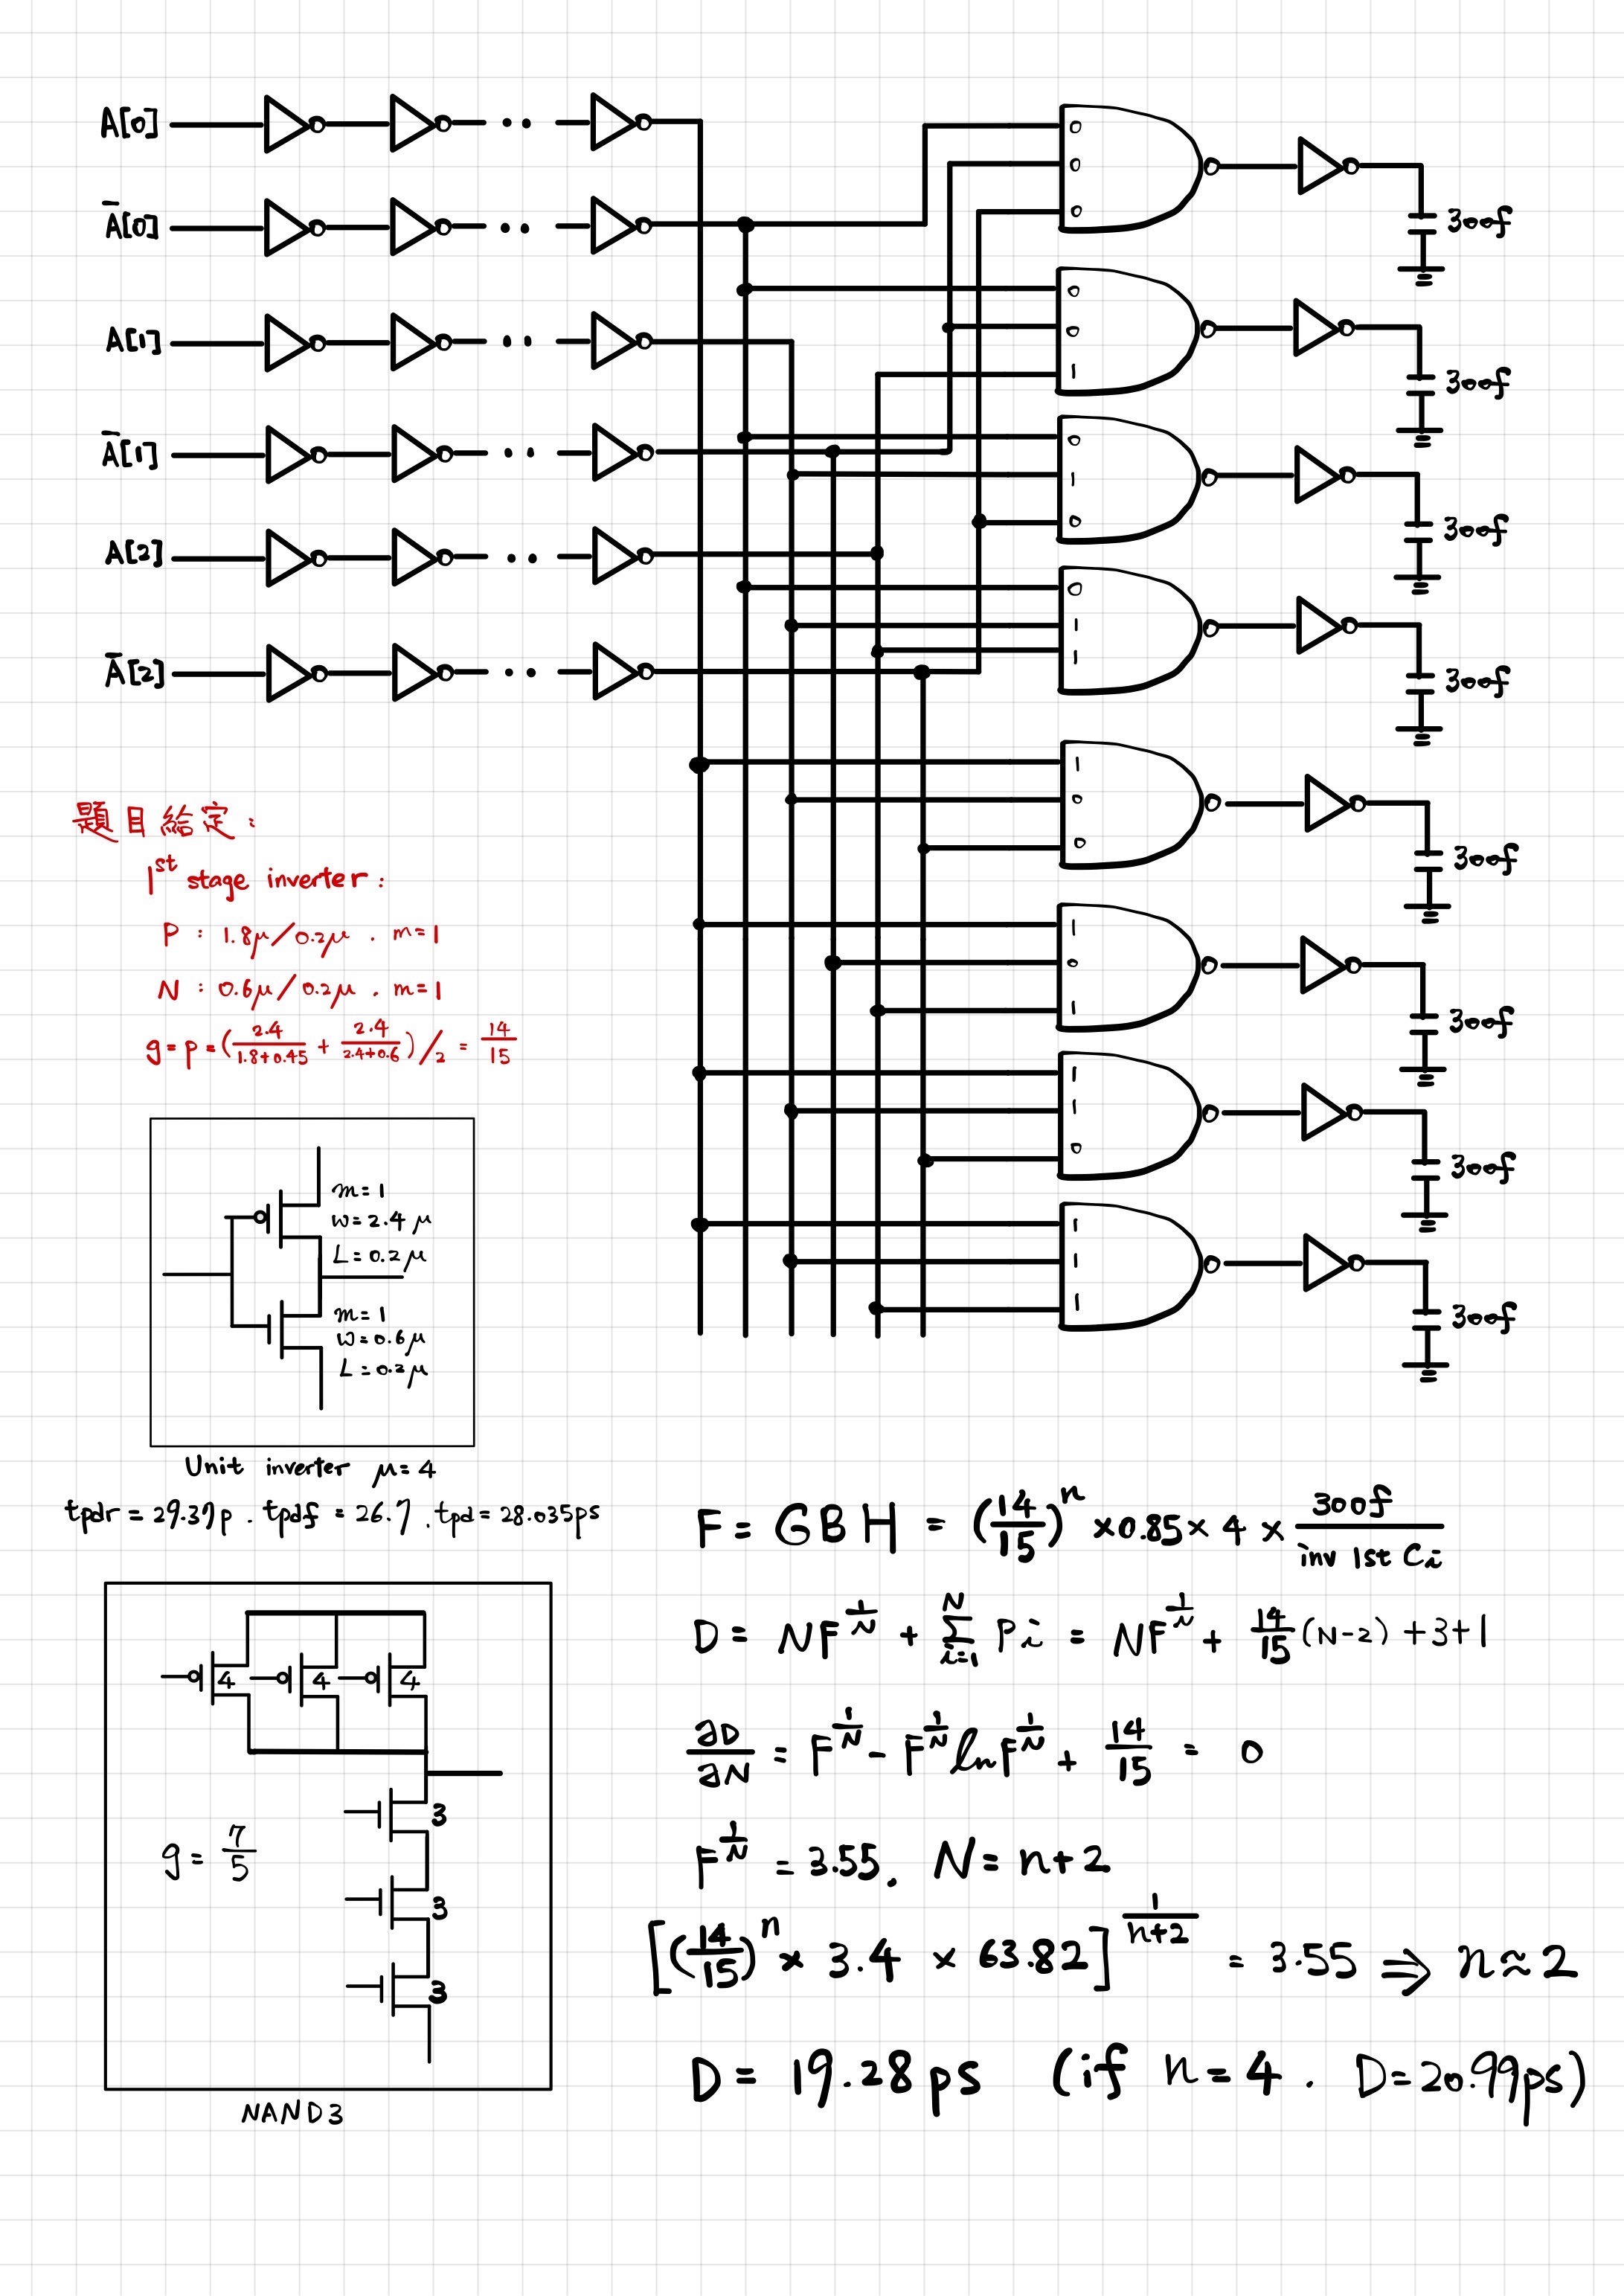 A[0]
Ā[0]
A[1]
Ā[1]
A[2]
Ā[2]
0
0
0
300f
0
0
1
300f
0
1
0
300f
0
1
1
300f
1
0
0
300f
1
0
1
300f
1
1
0
300f
1
1
1
300f
題目給定:
1st stage inverter:
P : 1.8μ/0.2μ . m=1
N : 0.6μ/0.2μ . m=1
g=p=(2.4/(1.8+0.45) + 2.4/(2.4+0.6))/2 = 14/15
m=1
W=2.4μ
L=0.2μ
m=1
W=0.6μ
L=0.2μ
Unit inverter μ=4
tpdr = 29.37p . tpdf = 26.7 . tpd = 28.035ps
4 4 4
3
3
3
g = 7/5
NAND3
F = GBH = (14/15)^n ×0.85× 4 × 300f/inv 1st Ci
D = NF^(1/N) + Σ_{i=1}^{N} Pi = NF^(1/N) + 14/15 (N-2) +3+1
∂D/∂N = F^(1/N) - F^(1/N) ln F^(1/N) + 14/15 = 0
F^(1/N) = 3.55. N = n+2
[(14/15)^n × 3.4 × 63.82]^(1/(n+2)) = 3.55 ⇒ n≈2
D = 19.28 ps (if n=4 . D=20.99ps)